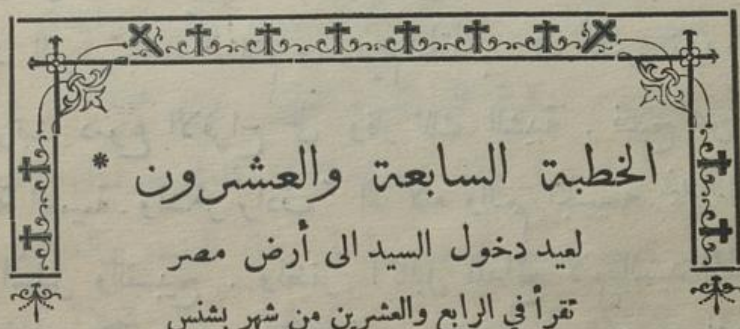 الخطبة السابعة والعشرون *
لعيد دخول السيد الى أرض مصر
تقرأ في الرابع والعشرين من شهر بشنس